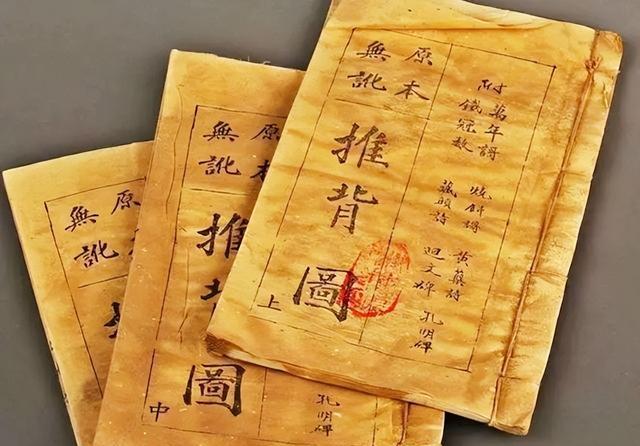 附
萬年譜
鐵冠數
藏頭詩
迴文碑
孔明碑
原本
無訛
推背圖
上
原本
無訛
推背圖
中
孔明碑
原本
無訛